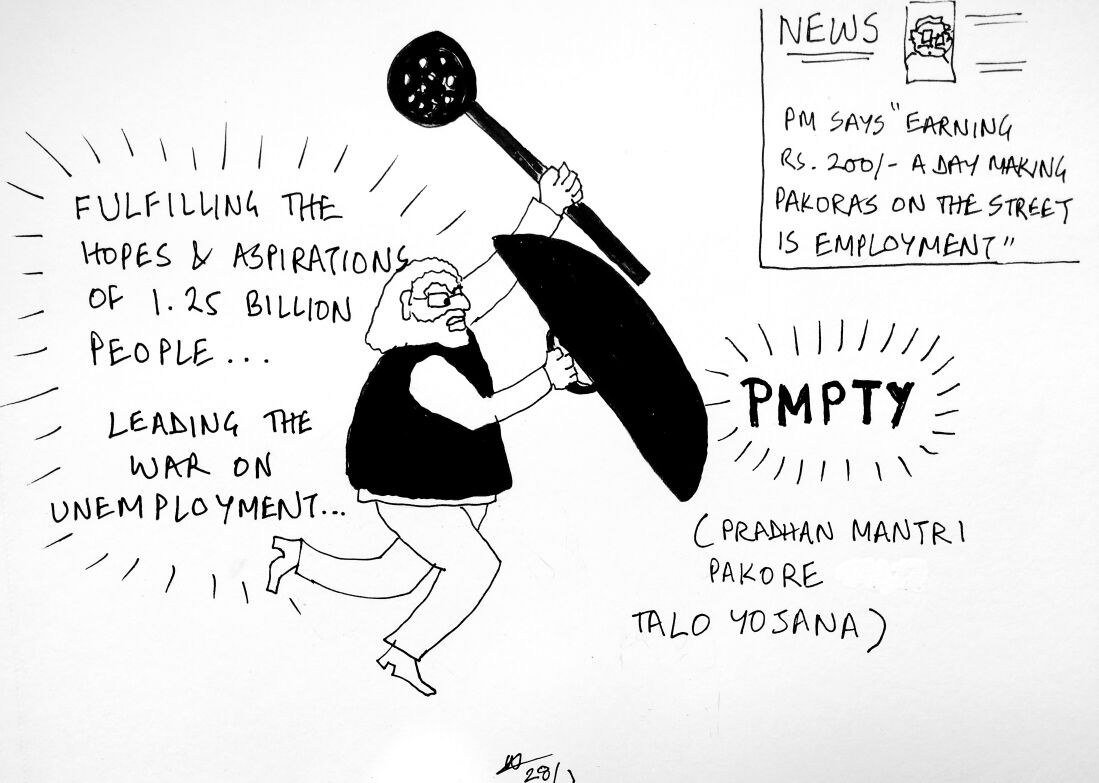 FULFILLING THE
HOPES & ASPIRATIONS
OF 1.25 BILLION
PEOPLE...
LEADING THE
WAR ON
UNEMPLOYMENT...
NEWS
PM SAYS "EARNING
RS. 200/- A DAY MAKING
PAKORAS ON THE STREET
IS EMPLOYMENT"
PMPTY
(PRADHAN MANTRI
PAKORE
TALO YOJANA)
28/1